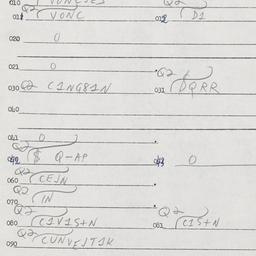 010 Q2 VONCJEJ Q2
011 VONC 012 D1
020 0
021 0 Q2
030 Q2 C1NG81N 031 DQRR
040
041 0
Q2
042 $ Q-AP 043 0
Q2
060 CEJN
Q2
070 IN
Q2 Q2
080 C1V1S+N 081 C1S+N
Q2
090 CUNVEJT1K